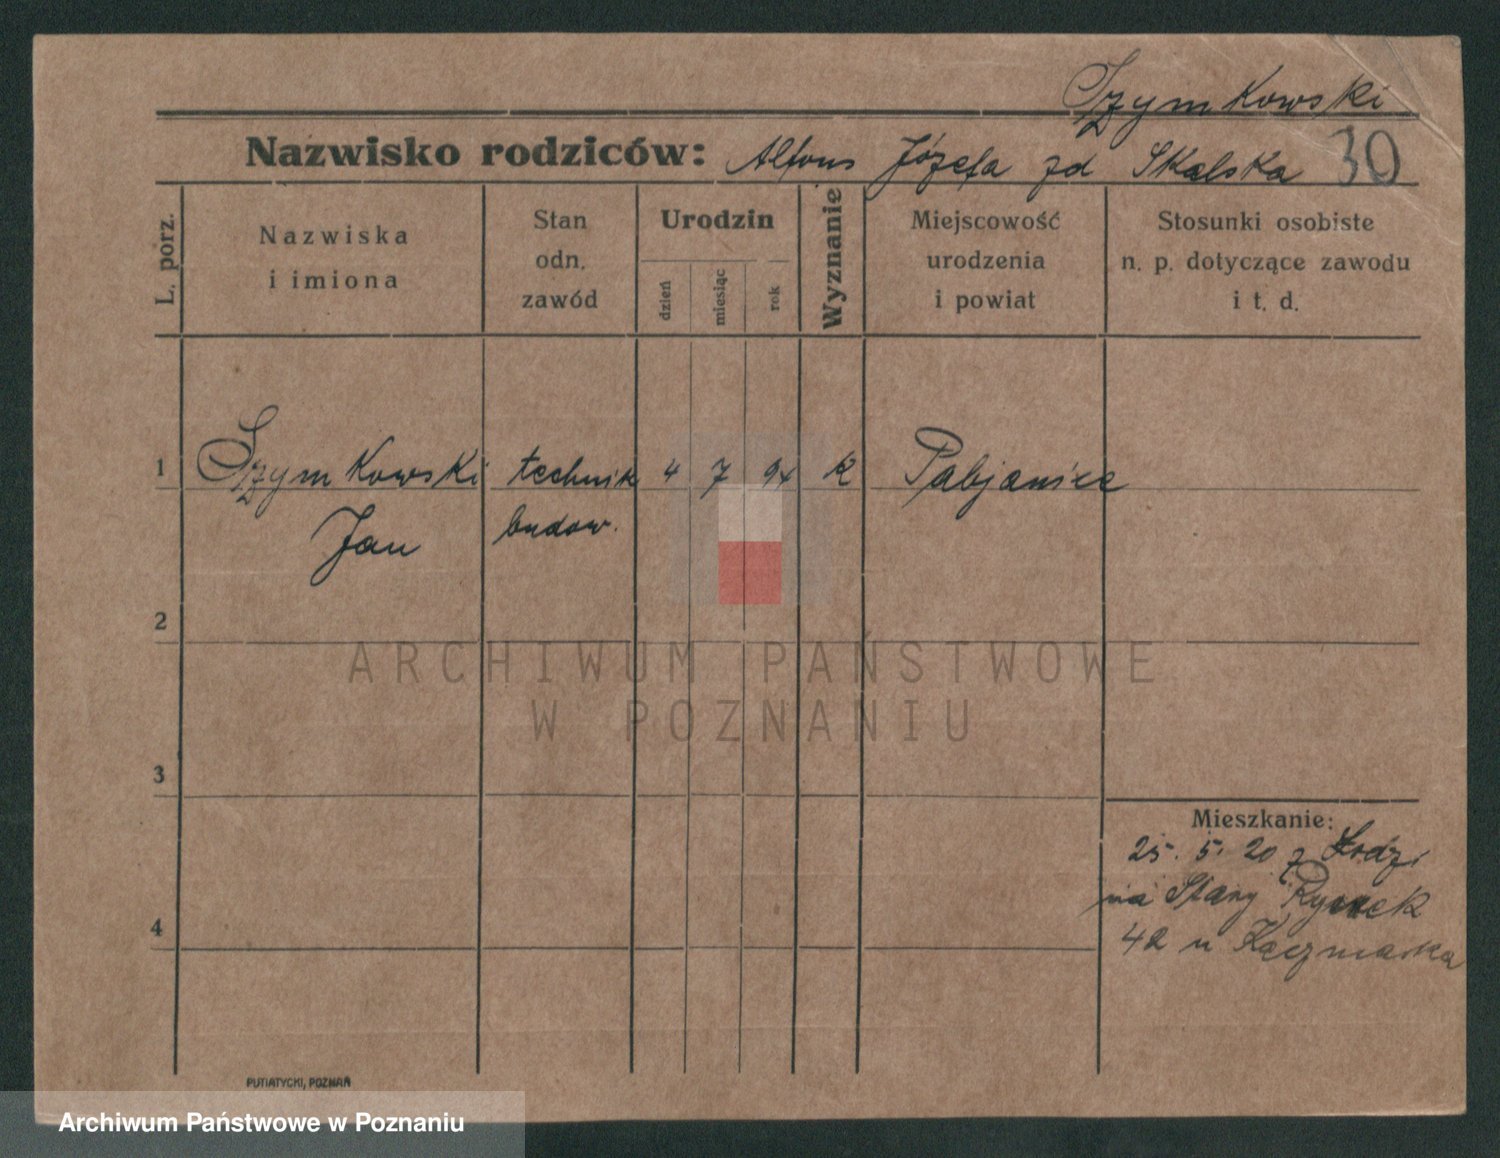 Szymkowski
Nazwisko rodziców: Alfons Józefa zd Skalska 30
L. porz.
Nazwiska
i imiona
Stan
odn.
zawód
Urodzin
dzień
miesiąc
rok
Wyznanie
Miejscowość
urodzenia
i powiat
Stosunki osobiste
n. p. dotyczące zawodu
i t. d.
1 Szymkowski technik 4 7 94 k Pabjanice
Jan budow.
2
ARCHIWUM PAŃSTWOWE
W POZNANIU
3
Mieszkanie:
25. 5. 20 z Łodzi
na Stary Rynek
4
42 u Kaczmarka
PUTIATYCKI, POZNAŃ
Archiwum Państwowe w Poznaniu